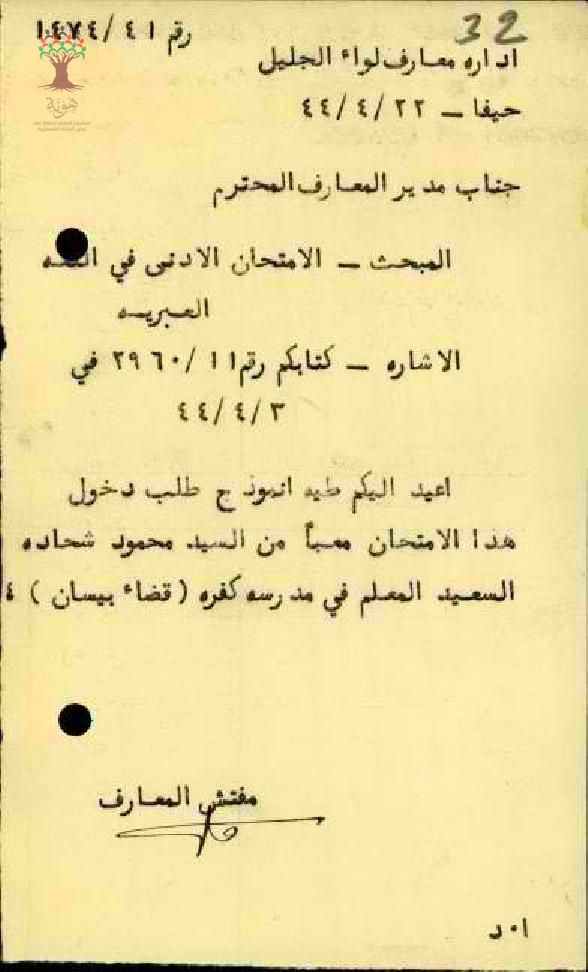 32
رقم ١٤٧٤/٤١
اداره معارف لواء الجليل
حيفا – ٤٤/٤/٢٢
هوية
جناب مدير المعارف المحترم
المبحث – الامتحان الادنى في اللغه
العبريه
الاشاره – كتابكم رقم ٢٩٦٠/١١ في
٤٤/٤/٣
اعيد اليكم طيه انموذج طلب دخول
هذا الامتحان معبأ من السيد محمود شحاده
السعيد المعلم في مدرسه كفره (قضاء بيسان) ٤
مفتش المعارف
ا٠د